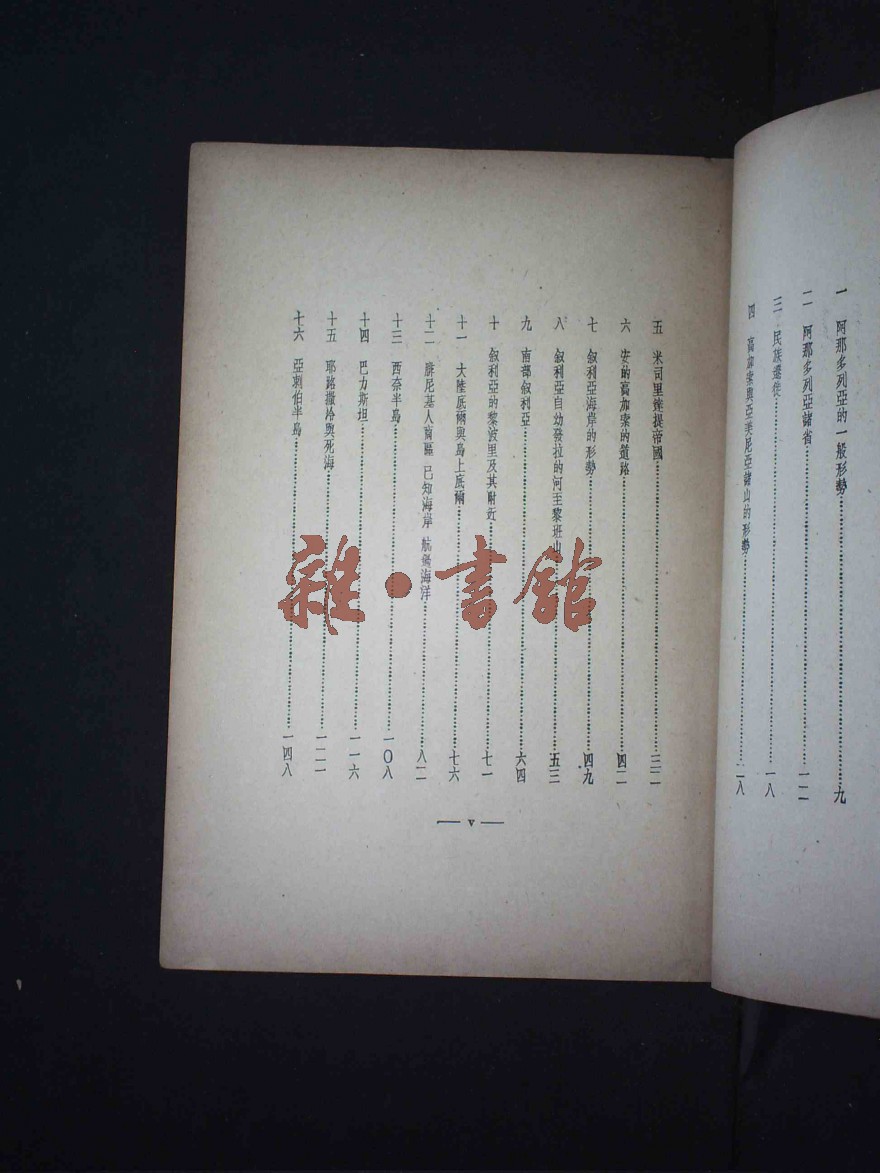 一 阿那多列亞的一般形勢……九
二 阿那多列亞諸省……一二
三 民族遷徙……一八
四 高加索與亞美尼亞諸山的形勢……二八
五 米司里達提帝國……三二
六 安的高加索的道路……四二
七 叙利亞海岸的形勢……四九
八 叙利亞自幼發拉的河至黎班山……五三
九 南部叙利亞……六四
十 叙利亞的黎波里及其附近……七一
十一 大陸底爾與島上底爾……七六
十二 腓尼基人商區 已知海岸 航駕海洋……八二
十三 西奈半島……一〇八
十四 巴力斯坦……一一六
十五 耶路撒冷與死海……一二一
十六 亞剌伯半島……一四八
— v —
雜·書館